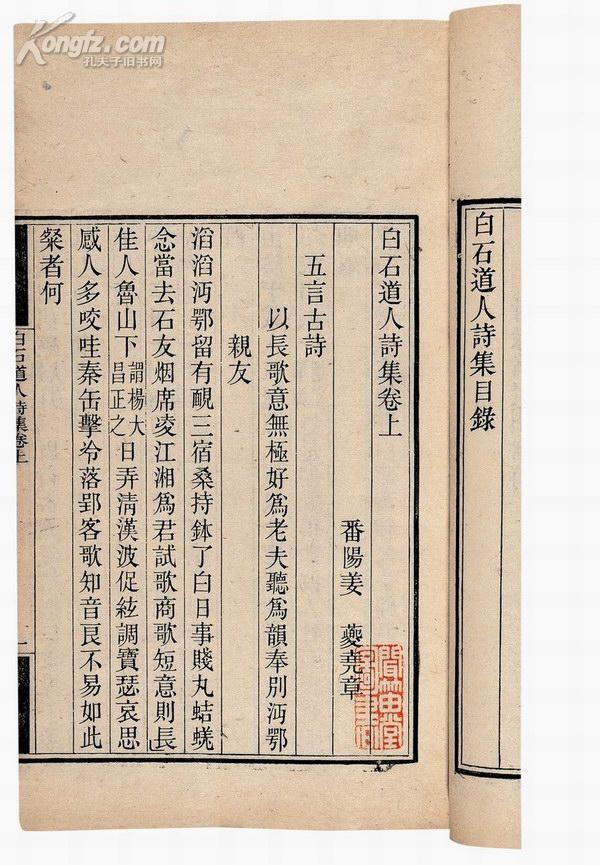 Kongfz.com
孔夫子旧书网
白石道人詩集目錄
白石道人詩集卷上
番陽姜 夔堯章
五言古詩
以長歌意無極好爲老夫聽爲韻奉別沔鄂
親友
滔滔沔鄂留有靦三宿桑持鉢了白日事賤丸蛣蜣
念當去石友烟席凌江湘爲君試歌商歌短意則長
佳人魯山下謂楊大昌正之日弄清漢波促絃調寶瑟哀思
感人多咬哇秦缶擊兮落郢客歌知音良不易如此
粲者何
白石道人詩集卷上
一